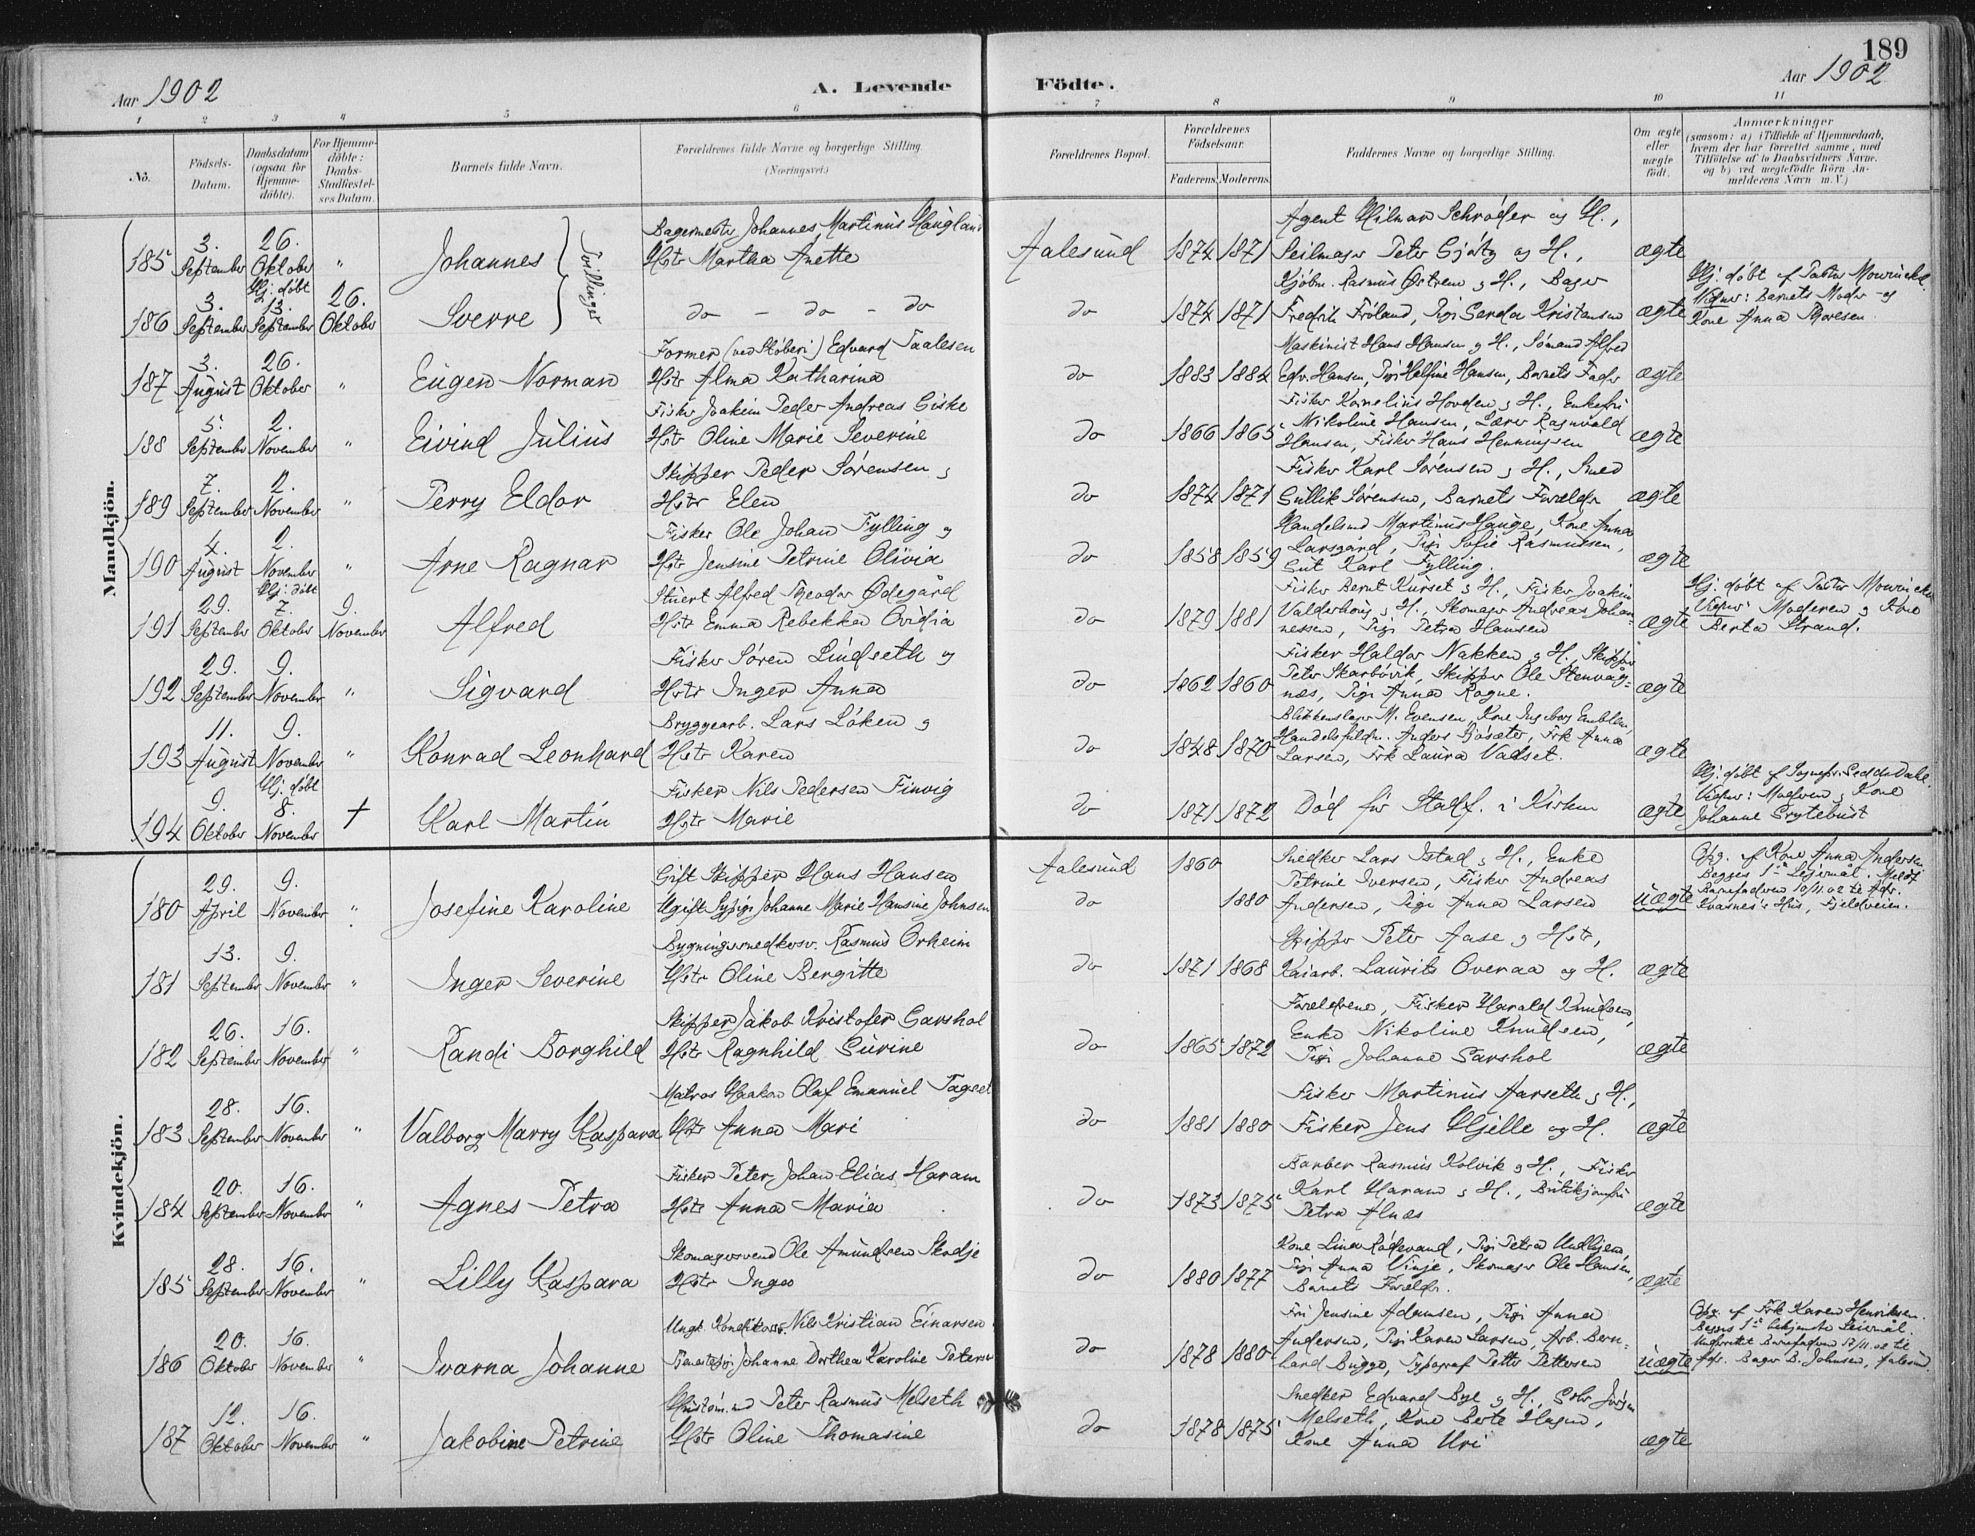 189
Aar 1902
A. Levende Födte.
Aar 1902
1 2 3 4 5 6 7 8 9 10 11
No.
Födsels-Datum.
Daabsdatum (ogsaa for Hjemmedöbte).
For Hjemmedöbte: Daabs-Stadfæstelses Datum.
Barnets fulde Navn.
Forældrenes fulde Navne og borgerlige Stilling. (Næringsvei.)
Forældrenes Bopæl.
Forældrenes Födselsaar.
Faderens. Moderens.
Faddernes Navne og borgerlige Stilling.
Om ægte eller uægte födt.
Anmærkninger
(saasom: a) i Tilfælde af Hjemmedaab,
hvem der har forrettet samme, med
Tilföielse af to Daabsvidners Navne.
og b) ved uægtefödte Börn An-
melderens Navn m. V.)
Mandkjön.
185 3. September 26. Oktober " Johannes
Tvillinger
Bagermester Johannes Martinus Haugland
Hstr Martha Anette
Aalesund 1874 1871
Agent Hilmar Schrøder og H.,
Seilmager Peter Gjørtz og H.,
Kjøbm. Rasmus Østrem og H., Bager
ægte
186 3. September Hj. døbt 13. September 26. Oktober Sverre
do - do - do
do 1874 1871
Fredrik Frøland, Pige Gerda Kristensen
ægte
Hj. døbt af Pastor Mowinckel.
Vidner: Barnets Moder og
Kone Anna Thoresen
187 3. August 26. Oktober " Eugen Norman
Former (ved Støberi) Edvard Paalesen
Hstr Alma Katharina
do 1883 1884
Maskinist Hans Hansen og H., Sømand Alfred
Edv. Hansen, Pige Helfine Hansen, Barnets Fader
ægte
188 5. September 2. November " Eivind Julius
Fisker Joakim Peder Andreas Giske
Hstr Oline Marie Severine
do 1866 1865
Fisker Kornelius Hovden og H., Enkefru
Nikoline Hansen, Lærer Ragnvald
Hansen, Fisker Hans Henningsen
ægte
189 7. September 2. November " Perry Eldor
Skipper Peder Sørensen og
Hstr Elen
do 1874 1871
Fisker Karl Sørensen og H., Smed
Gullik Sørensen, Barnets Forældre
ægte
190 4. August 2. November " Arne Ragnar
Fisker Ole Johan Fylling og
Hstr Jensine Petrine Olivia
do 1858 1859
Handelsmd Martinus Hauge, Kone Anna
Larsgård, Pige Sofie Rasmussen,
Gut Karl Fylling.
ægte
191 29. September Hj. døbt 7. Oktober 9. November Alfred
Stuert Alfred Theodor Ødegård
Hstr Emma Rebekka Ovidia
do 1879 1881
Fisker Bernt Kurset og H., Fisker Joakim
Valderhoug og H., Skomager Andreas Johan-
nessen, Pige Petra Hansen
ægte
Hj. døbt af Pastor Mowinckel
Vidner: Moderen og Kone
Berta Strand.
192 29. September 9. November " Sigvard
Fisker Søren Lindseth og
Hstr Inger Anna
do 1862 1860
Fisker Haldor Nakken og H., Skipper
Peter Skarbøvik, Skipper Ole Stenvåg-
næs, Pige Anna Rogne.
ægte
193 11. August 9. November " Konrad Leonhard
Bryggearb. Lars Løken og
Hstr Karen
do 1848 1870
Blikkenslager M. Evensen, Kone Ingeborg Emblem,
Handelsfuldm. Anders Gjøsæter, Frk Anna
Larsen, Frk Laura Vadset.
ægte
194 9. Oktober Hj. døbt 8. November † Karl Martin
Fisker Nils Pedersen Finvig
Hstr Marie
do 1871 1872
Død før Stadf. i Kirken
ægte
Vidner: Moderen og Kone
Johanne Grytebust
Kvindekjön.
180 29. April 9. November " Josefine Karoline
Gift Skipper Hans Hansen
Ugift Sypige Johanne Marie Hansine Johnsen
Aalesund 1860
do 1880
Snedker Lars Istad og H., Enke
Petrine Iversen, Fisker Andreas
Andersen, Pige Anna Larsen
uægte
Opg. af Kone Anna Andersen
Begges 1ste Leiermål. Meldt
Barnefaderen 10/11 02 til Adr.
Kvasnes's Hus, Fjeldveien.
181 13. September 9. November " Inger Severine
Bygningssnedkersv. Rasmus Orheim
Hstr Oline Bergitte
do 1871 1868
Skipper Peter Aase og Hstr,
Kaiarb. Laurits Overaa og H.
ægte
182 26. September 16. November " Randi Borghild
Skipper Jakob Kristofer Garshol
Hstr Ragnhild Gurine
do 1865 1872
Forældrene, Fisker Harald Knudsen,
Enke Nikoline Knudsen,
Pige Johanne Garshol
ægte
183 28. September 16. November " Valborg Marry Kaspara
Matros Haakon Olaf Emanuel Tagset
Hstr Anna Mari
do 1881 1880
Fisker Martinus Aarseth og H.,
Fisker Jens Hjelle og H.
ægte
184 20. September 16. November " Agnes Petra
Fisker Peter Johan Elias Haram
Hstr Anna Maria
do 1873 1875
Barber Rasmus Kolvik og H., Fisker
Karl Haram og H., Butikjomfru
Petra Alnæs
ægte
185 28. September 16. November " Lilly Kaspara
Skomagersvend Ole Amundsen Skodje
Hstr Inga
do 1880 1877
Kone Lina Rødsvand, Pige Petra
Pige Anna Vinje, Skomager Ole Hansen,
Barnets Forældre.
ægte
186 20. Oktober 16. November " Ivarna Johanne
Ungk. Konditorsv. Nils Kristian Einarsen
Tjenestepige Johanne Dorthea Karoline Petersen
do 1878 1880
Fru Jensine Adamsen, Pige Anna
Andersen, Pige Karen Larsen, Arb. Bern-
hard Bugge, Typograf Petter Pettersen
uægte
Opg. af Frk Karen Henriksen.
Begges 1ste bekjendte Leiermål.
Underrettet Barnefaderen 17/11 02 til
Adr. Bager B. Johnsen, Aalesund.
187 12. Oktober 16. November " Jakobine Petrine
Hustøm.md Peter Rasmus Melseth
Hstr Oline Thomasine
do 1878 1875
Snedker Edvard Bye og H., Gbr Jørgen
Melseth, Kone Berte Hagen,
Kone Anna Uri
ægte